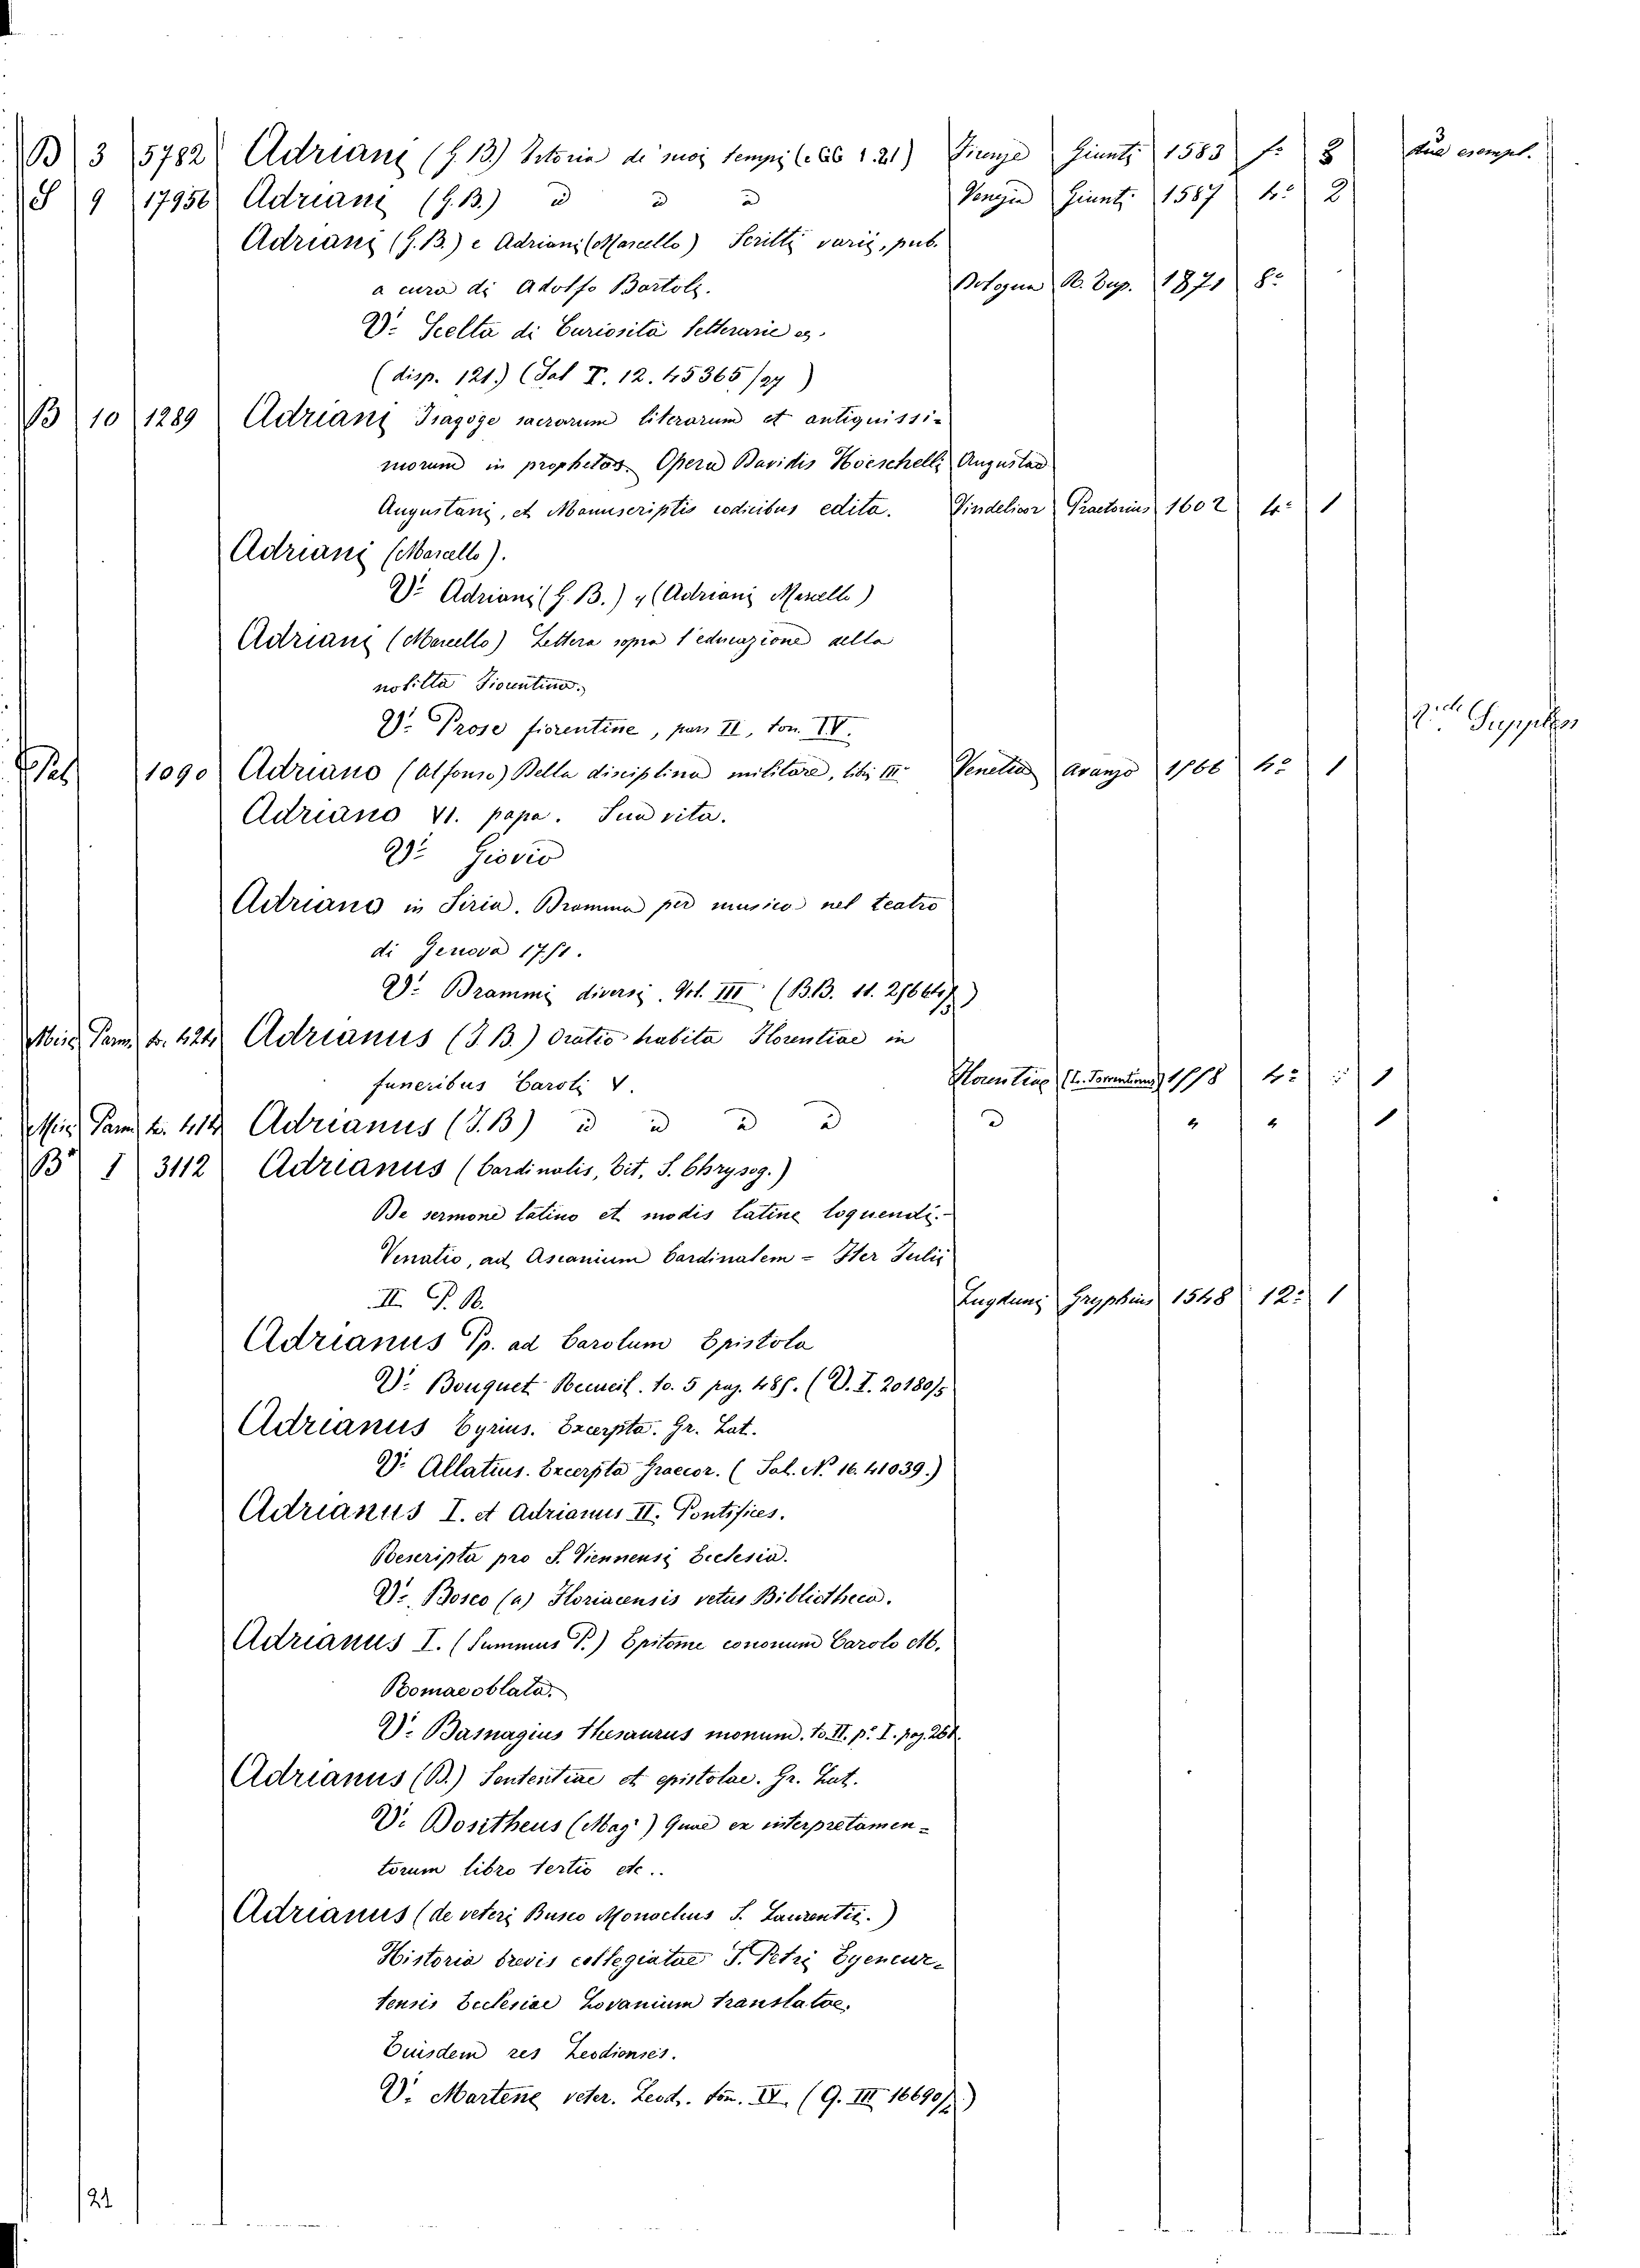 B 3 5782 Adriani (G. B.) Istoria de' suoi tempi Firenze Giunti 1583 f.º 2 due esempl.
S 9 17956 Adriani (G. B.) id id id Venezia Giunti 1587 4.º 2
Adriani (G. B.) e Adriani (Marcello) Scritti varii, pub.
a cura di Adolfo Bartoli. Bologna R. Tip. 1871 8.º
V.i Scelta di Curiosità letterarie
(disp. 121.) (Sal V. 12. 45365/27)
B 10 1289 Adriani Isagoge sacrarum literarum et antiquissi-
morum in prophetas. Opera Davidis Hoeschelii Augustae
Augustani, et Manuscriptis codicibus edita. Vindelicor Praetorius 1602 4.º 1
Adriani (Marcello).
V.i Adriani (G. B.) e (Adriani Marcello)
Adriani (Marcello) Lettera sopra l'educazione della
nobiltà Fiorentina.
V.i Prose fiorentine, par. II, tom. IV.
Pal 1090 Adriano (Alfonso) Della disciplina militare, libri III Venetia Avanzo 1566 4.º 1
Adriano VI. papa. Sua vita.
V.i Giovio
Adriano in Siria. Dramma per musica nel teatro
di Genova 1751.
V.i Drammi diversi. Vol. III
Misc. Parm. to. 424 Adrianus (J. B.) Oratio habita Florentiae in
funeribus Caroli V. Florentiae (L. Torrentinus) 1558 4.º 1
Misc. Parm. to. 414 Adrianus (J. B) id id id id id " " 1
B" I 3112 Adrianus (Cardinalis, Tit. S. Chrysog.)
De sermone latino et modis latine loquendi.-
Venatio, ad Ascanium Cardinalem - Iter Julii
II. P. R. Lugduni Gryphius 1548 12.º 1
Adrianus Pp. ad Carolum Epistola
V.i Bouquet Recueil. to. 5 pag. 485. (D. I. 20180/5
Adrianus Tyrius. Excerpta. Gr. Lat.
V.i Allatius. Excerpta Graecor. (Sal. N. 16. 41039.)
Adrianus I. et Adrianus II. Pontifices.
Rescripta pro S. Viennensi Ecclesia.
V.i Bosco (a) Floriacensis vetus Bibliotheca.
Adrianus I. (Summus P.) Epitome canonum Carolo M.
Romae oblata.
V.i Basnagius Thesaurus monum. to. II. p. I. pag. 261.
Adrianus (B.) Sententiae et epistolae. Gr. Lat.
V.i Dositheus (Mag.r) Quae ex interpretamen-
torum libro tertio etc..
Adrianus (de veteri Busco Monachus S. Laurentii.)
Historia brevis collegiatae S. Petri Eyencur-
tensis Ecclesiae Lovanium translatae.
Euisdem res Leodienses.
V.i Martene veter. Leod. tom. IV. (G. III 16690/)
21